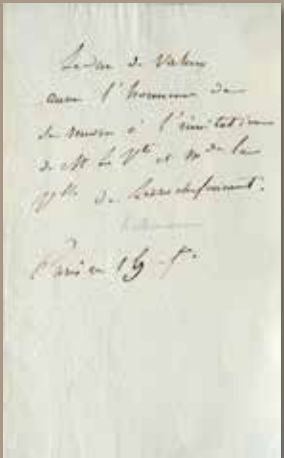 Le duc de Valmy
aura l'honneur de
se rendre à l'invitation
de Mr Le Vte et Mme de la
Vtesse de Larochefoucault.
Paris ce 19